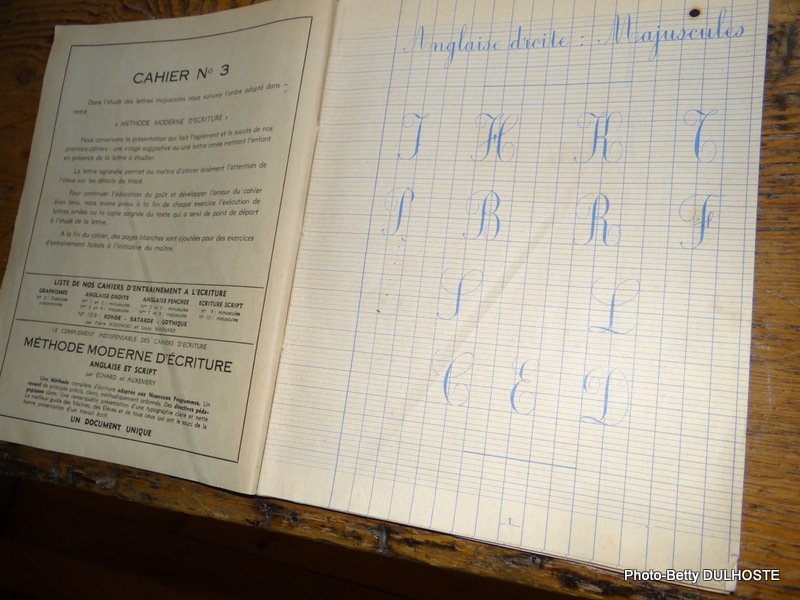 CAHIER Nº 3
Dans l'étude des lettres majuscules nous suivons l'ordre adopté dans
notre
« METHODE MODERNE D'ECRITURE »
Nous conservons la présentation qui fait l'agrément et le succès de nos
premiers cahiers : une image suggestive ou une lettre ornée mettant l'enfant
en présence de la lettre à étudier.
La lettre agrandie permet au maître d'attirer aisément l'attention de
l'élève sur les détails du tracé.
Pour continuer l'éducation du goût et développer l'amour du cahier
bien tenu, nous avons prévu à la fin de chaque exercice l'exécution de
lettres ornées ou la copie soignée du texte qui a servi de point de départ
à l'étude de la lettre.
A la fin du cahier, des pages blanches sont ajoutées pour des exercices
d'entrainement laissés à l'initiative du maître.
LISTE DE NOS CAHIERS D'ENTRAINEMENT A L'ECRITURE
GRAPHISMES ANGLAISE DROITE ANGLAISE PENCHEE ECRITURE SCRIPT
Nº 0 : Exercices Nos 1 et 2 : minuscules Nos 5 et 6 : minuscules Nº 9 : minuscules
préparatoires Nos 3 et 4 : majuscules Nos 7 et 8 : majuscules Nº 10 : majuscules
Nº 109 : RONDE - BATARDE - GOTHIQUE
par Pierre et Louis MAGNARD
LE COMPLEMENT INDISPENSABLE DES CAHIERS D'ECRITURE
MÉTHODE MODERNE D'ÉCRITURE
ANGLAISE ET SCRIPT
par ECHARD et AUXEMERY
Une Méthode complète d'écriture adaptée aux Nouveaux Programmes. Un
recueil de principes précis, clairs, méthodiquement ordonnés. Des directives péda-
gogiques sûres. Une remarquable présentation d'une typographie claire et nette
Le meilleur guide des Maîtres, des Elèves et de tous ceux qui ont le souci de la
bonne présentation d'un travail écrit.
UN DOCUMENT UNIQUE
Anglaise droite : Majuscules
I H K T
P B R F
S L
C E D
-1-
Photo-Betty DULHOSTE